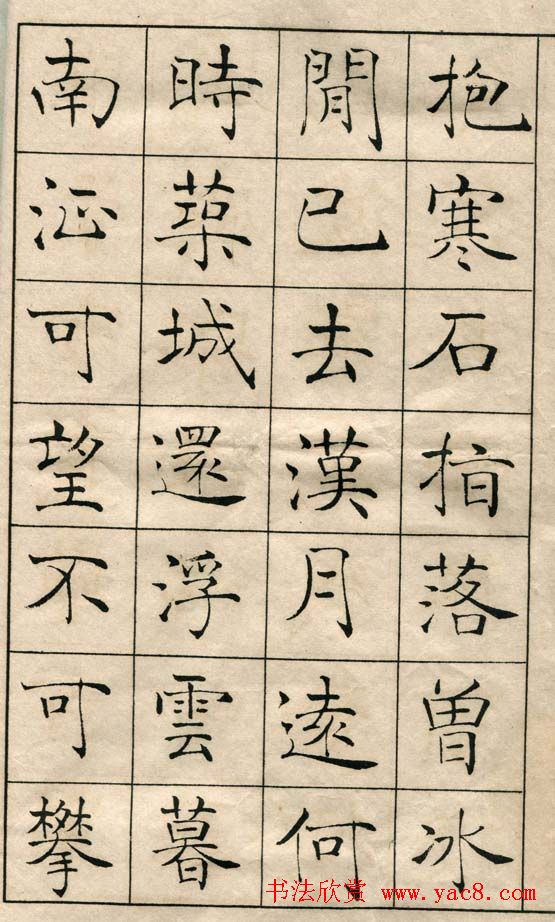 抱寒石指落曾冰
閒已去漢月遠何
時築城還浮雲暮
南征可望不可攀
书法欣赏 www.yac8.com